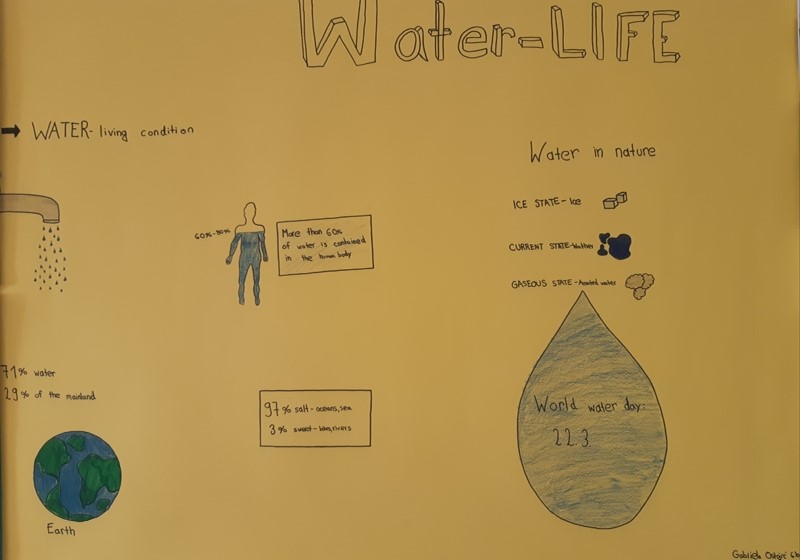 Water-LIFE
WATER- living condition
60%-80%
More than 60%
of water is contained
in the human body
71% water
29% of the mainland
Earth
97% salt-oceans,sea
3% sweet-lakes,rivers
Water in nature
ICE STATE-Ice
CURRENT STATE-
GASEOUS STATE- water
World water day:
22.3.
Gabriela